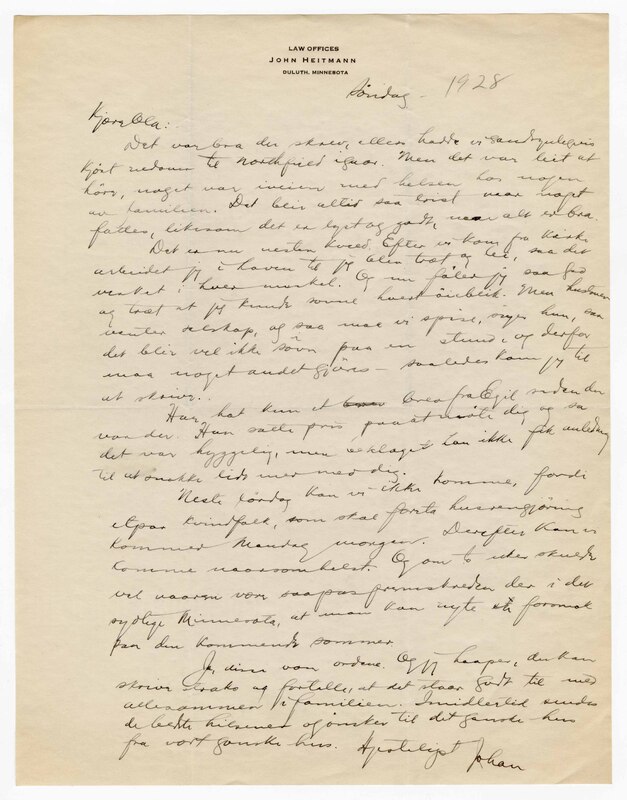 LAW OFFICES
JOHN HEITMANN
DULUTH, MINNESOTA
Søndag - 1928
Kjære Ola:
Det var bra du skrev, ellers hadde vi sandsynligvis
kjört nedover til Northfield igaar. Men det var leit at
höre, noget var iveien med helsen hos nogen
av familien. Det blir altid saa trist naar noget
fattes, likesom det er lyst og godt, naar alt er bra.
Det er nu nesten kveld. Efter vi kom fra kirke
arbeidet jeg i haven til jeg blev træt og lei, saa det
verket i hver muskel. Og nu föler jeg saa god
og træt at jeg kunde sovne hvert öieblik. Men hustruen
venter selskap, og saa maa vi spise, siger hun, saa
det blir vel ikke sövn paa en stund, og derfor
maa noget andet gjöres - saaledes kom jeg til
at skrive.
Har hat kun et brev fra Egil siden du
var der. Han satte pris paa at möte dig, og sa
det var hyggelig, men beklaget han ikke fik anledning
til at snakke lidt mer med dig.
Neste lördag kan vi ikke komme, fordi
et par kvindfolk, som skal foresta husrengjöring
kommer Mandag morgen. Derefter kan vi
komme naarsomhelst. Og om to uker skulde
vel vaaren være saapas fremskreden der i det
sydlige Minnesota, at man kan nyte en forsmak
paa den kommende sommer.
Ja, dine var ordene. Og jeg haaper, du kan
skrive straks og fortelle, at det staar godt til med
allesammen i familien. Imidlertid sendes
de bedste hilsener og önsker til det ganske hus
fra vort ganske hus. Hjerteligst Johan